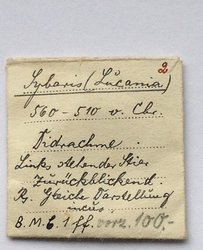 2
Sybaris (Lucania)
560-510 v. Chr.
Didrachme.
Links stehender Stier
zurückblickend.
R. Gleiche Darstellung
incus.
B.M.C. 1 ff. vorz. 100,-